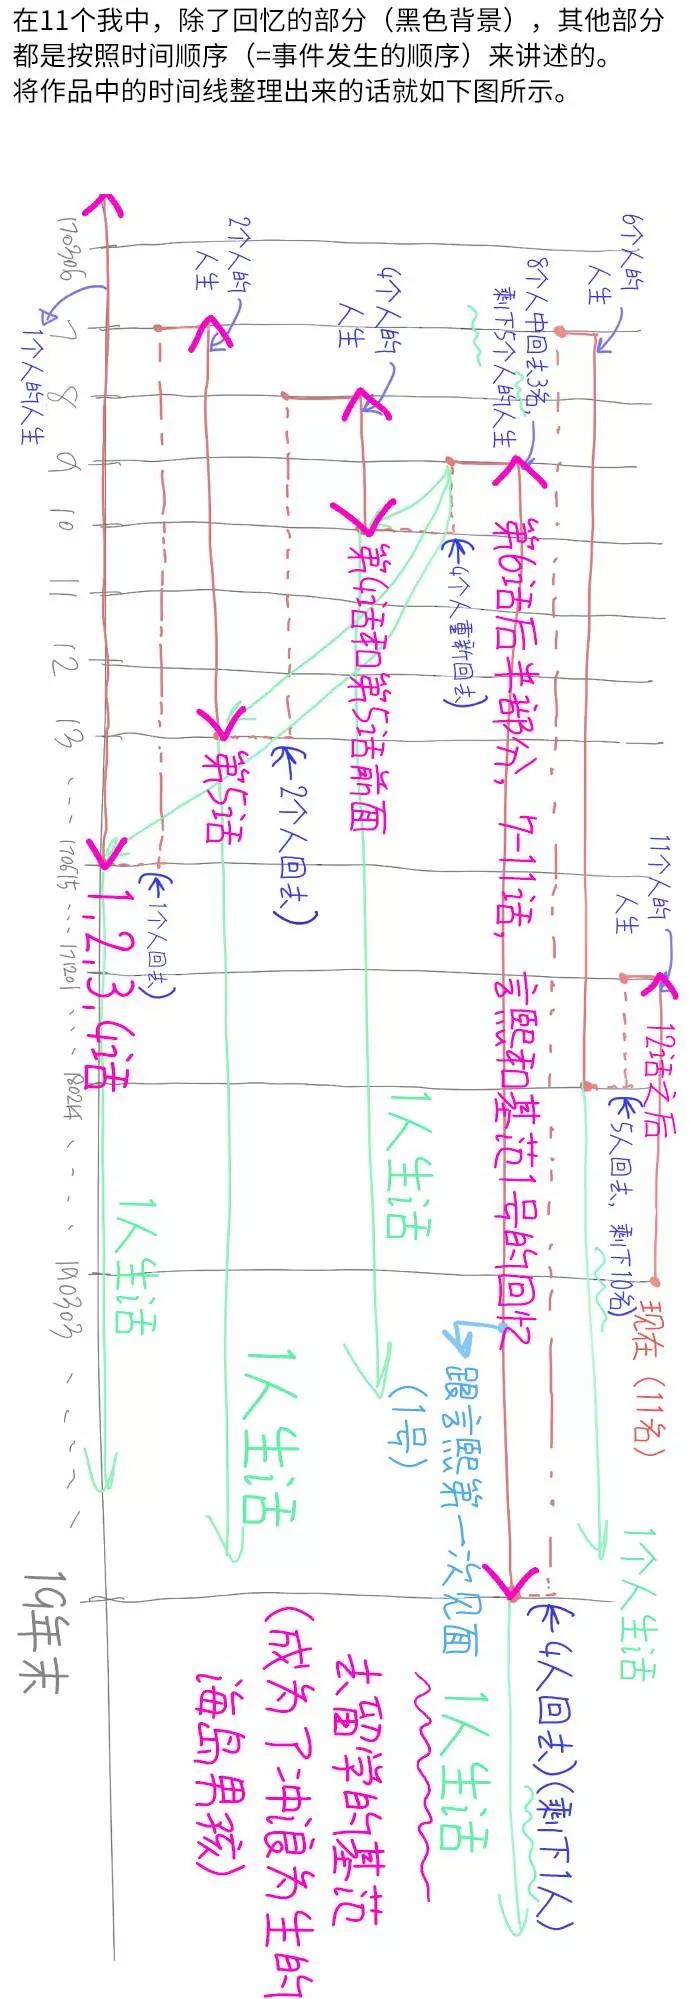 在11个我中，除了回忆的部分（黑色背景），其他部分
都是按照时间顺序（=事件发生的顺序）来讲述的。
将作品中的时间线整理出来的话就如下图所示。
170306
7
8
9
10
11
12
13
170615
171201
180214
190303
19年末
1个人的人生
(←1个人回去)
1,2,3,4话
1人生活
2个人的
人生
第5话
(←2个人回去)
1人生活
4个人的
人生
第4话和第5话前面
1人生活
(1号)
(←4个人重新回去)
8个人中回去3名,
剩下5个人的人生
第6话后半部分, 7-11话, 言熙和基范1号的回忆
跟言熙第一次见面
1人生活
(←4人回去)(剩下1人)
去留学的基范
(成为了冲浪为生的
海岛男孩)
6个人的
人生
(←5人回去, 剩下10名)
1个人生活
11个人的
人生
12话之后
现在 (11名)